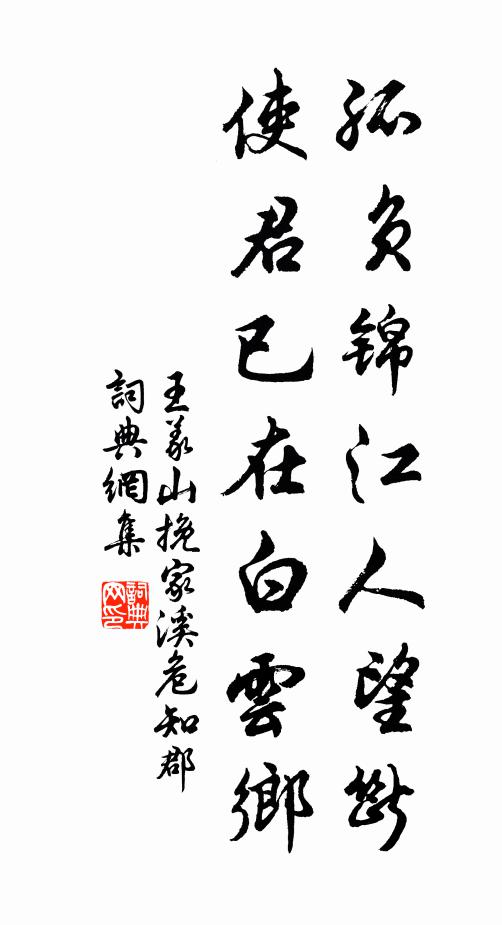 孤负锦江人望断
使君已在白雲鄉
王義山挽家溪危知郡
詞典網集
詞典
网印